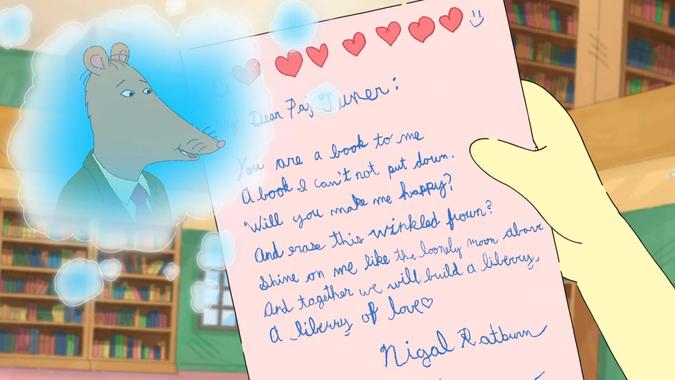 Dear Paj Turner:
You are a book to me
A book I can't not put down.
Will you make me happy?
And erase this winkled frown?
Shine on me like the loonly moon above
And together we will build a liberry,
A liberry of love♡
Nigal Ratburn